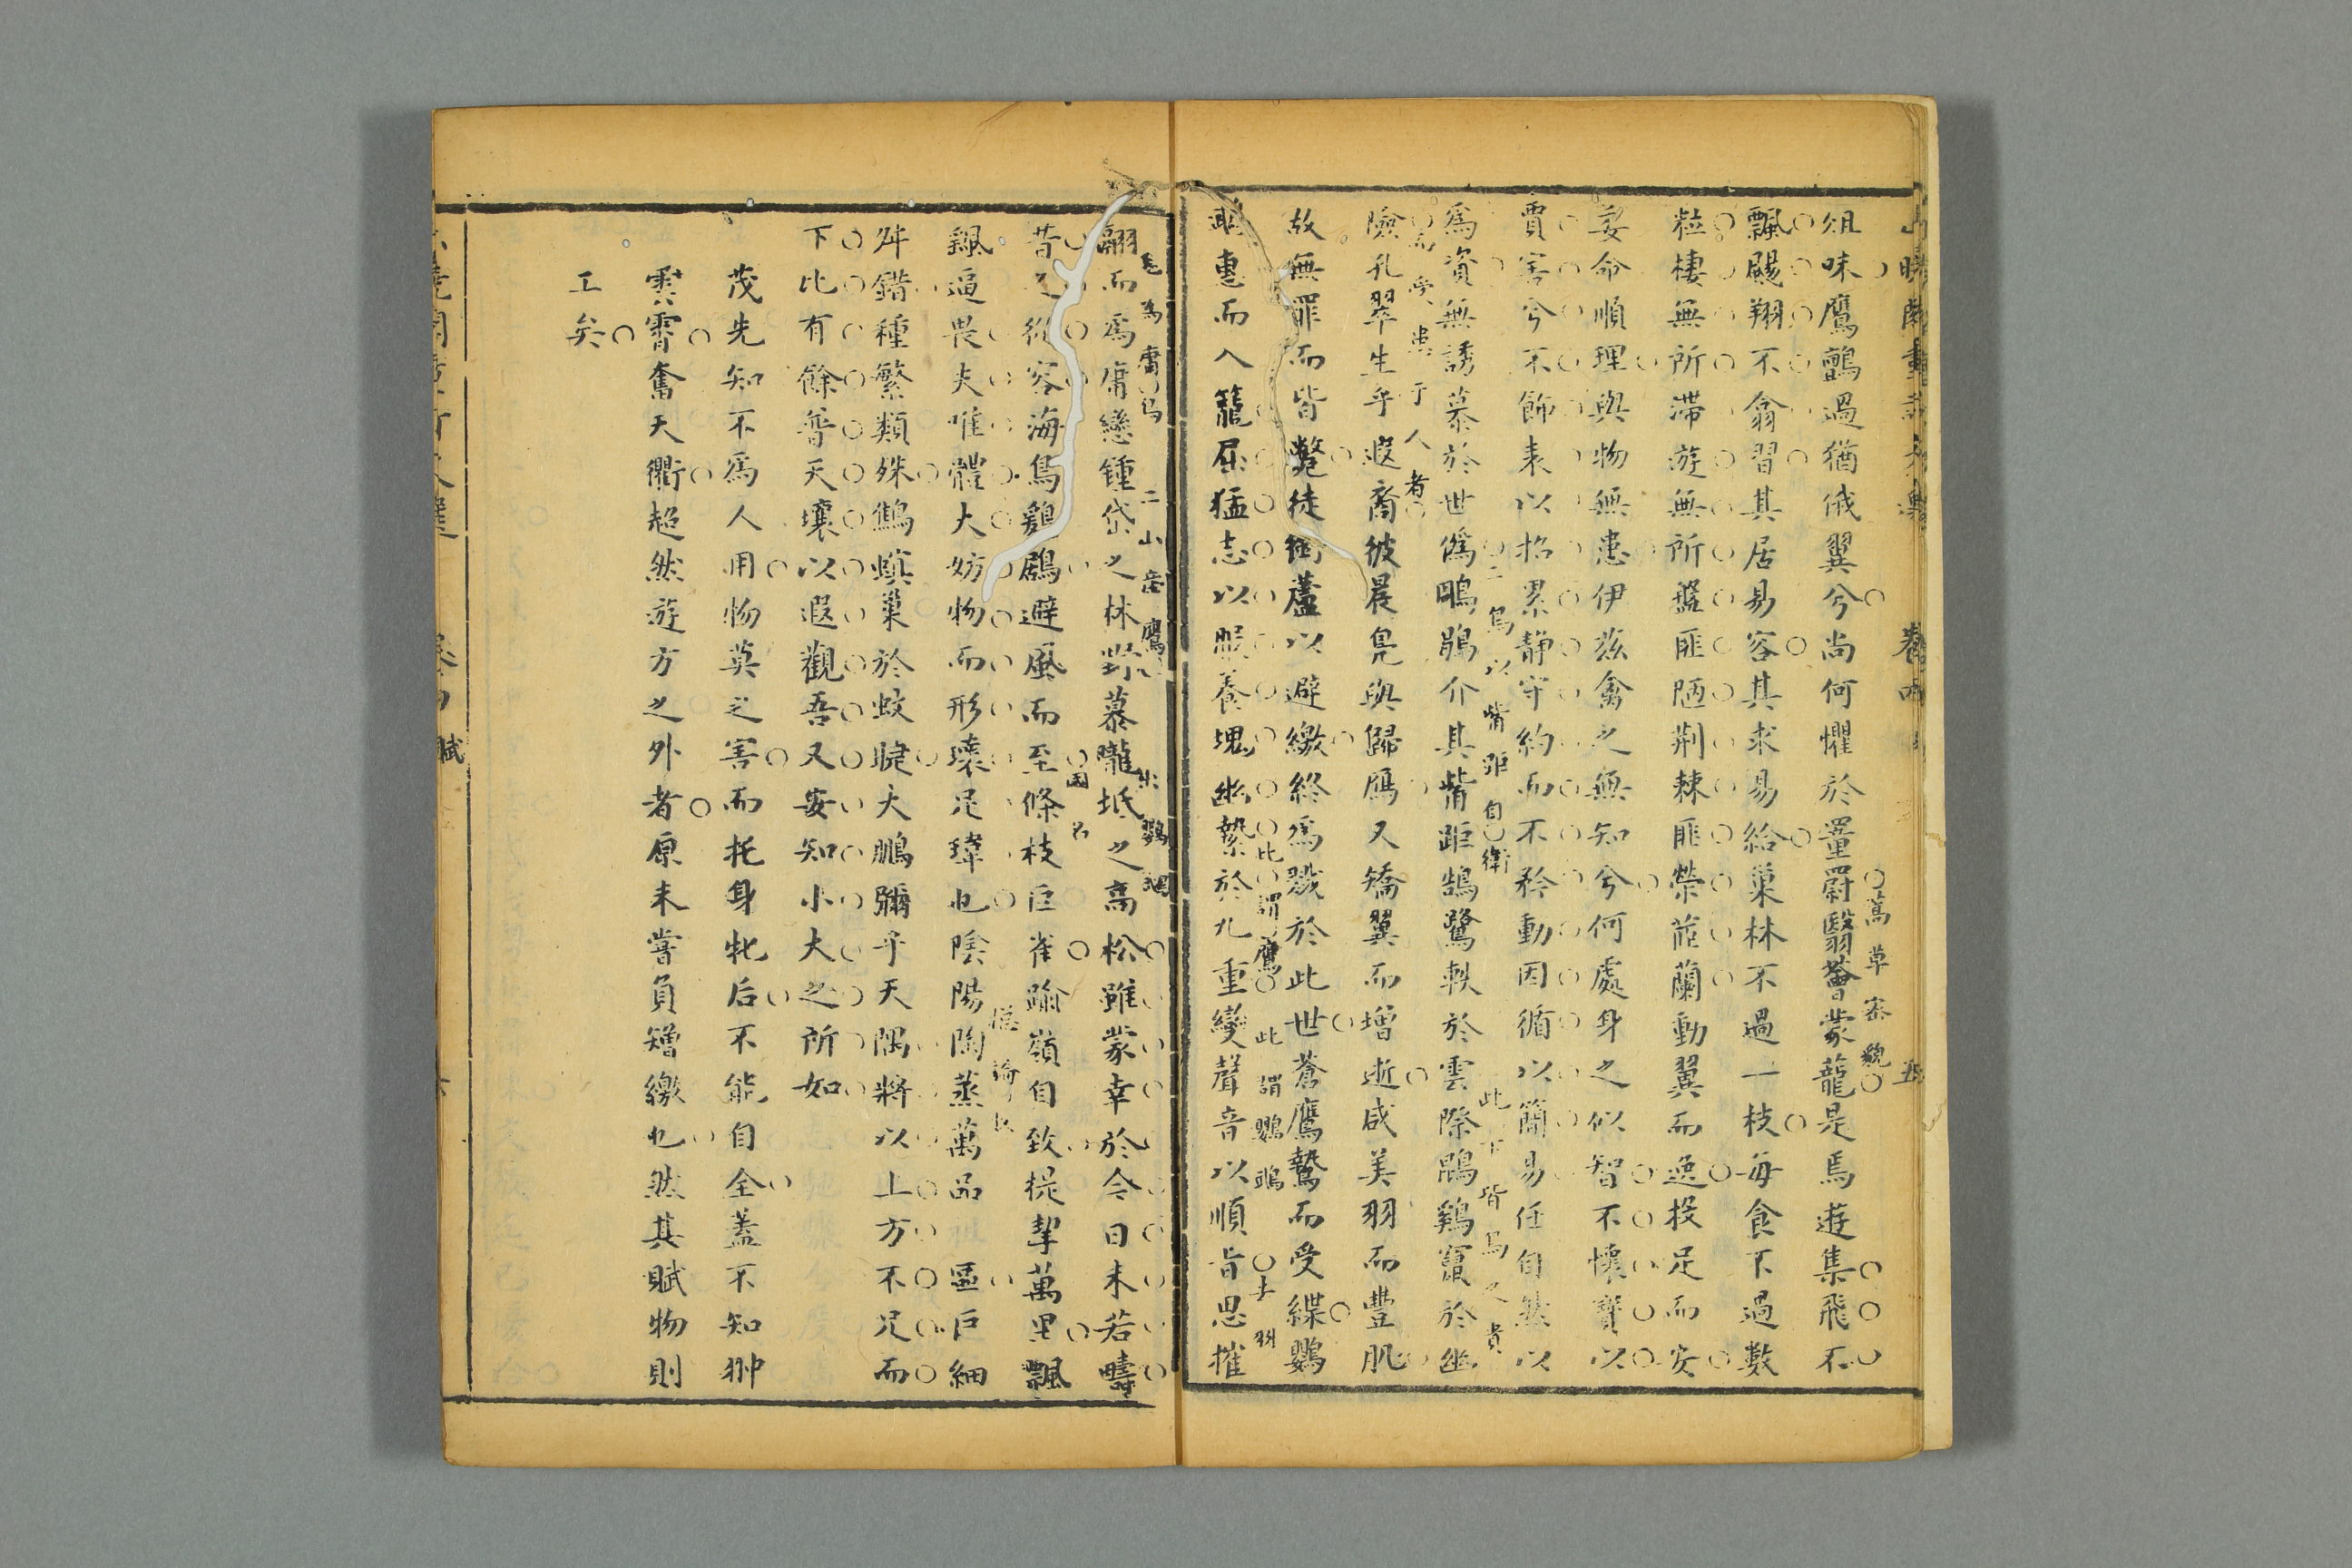 俎味鷹鸇過猶俄翼兮尚何懼於罿罻翳薈蒙蘢是焉遊集飛不
薈草密貌
飄颺翔不翕習其居易容其求易給巢林不過一枝每食不過數
粒棲無所滯遊無所盤匪陋荊棘匪榮茝蘭動翼而逸投足而安
委命順理與物無患伊茲禽之無知兮何處身之似智不懷寶以
賈害兮不飾表以招累靜守約而不矜動因循以簡易任自然以
二鳥以觜距自衛 此下皆鳥之貴
爲資無誘慕於世僞鵰鶡介其觜距鵠鷺軼於雲際鵾鷄竄於幽
而受患于人者
險孔翠生乎遐裔彼晨鳧與歸鴈又矯翼而增逝咸美羽而豐肌
故無罪而皆斃徒銜蘆以避繳終爲戮於此世蒼鷹鷙而受緤鸚
比謂鷹 此謂鸚鵡 去羽
鵡惠而入籠屈猛志以服養塊幽縶於九重變聲音以順旨思摧
毛爲庸 二山產鷹 出鸚鵡
翮而爲庸戀鍾岱之林野慕隴坻之高松雖蒙幸於今日未若疇
國名
昔之從容海鳥鶢鶋避風而至條枝巨雀踰嶺自致提挈萬里飄
颻逼畏夫唯體大妨物而形瓌足瑋也陰陽陶蒸萬品一區巨細
舛錯種繁類殊鷦螟巢於蚊睫大鵬彌乎天隅將以上方不足而
下比有餘普天壤以遐觀吾又安知小大之所如
茂先知不爲人用物莫之害而托身牝后不能自全蓋不知翀
雲霄奮天衢超然遊方之外者原未嘗負矰繳也然其賦物則
工矣